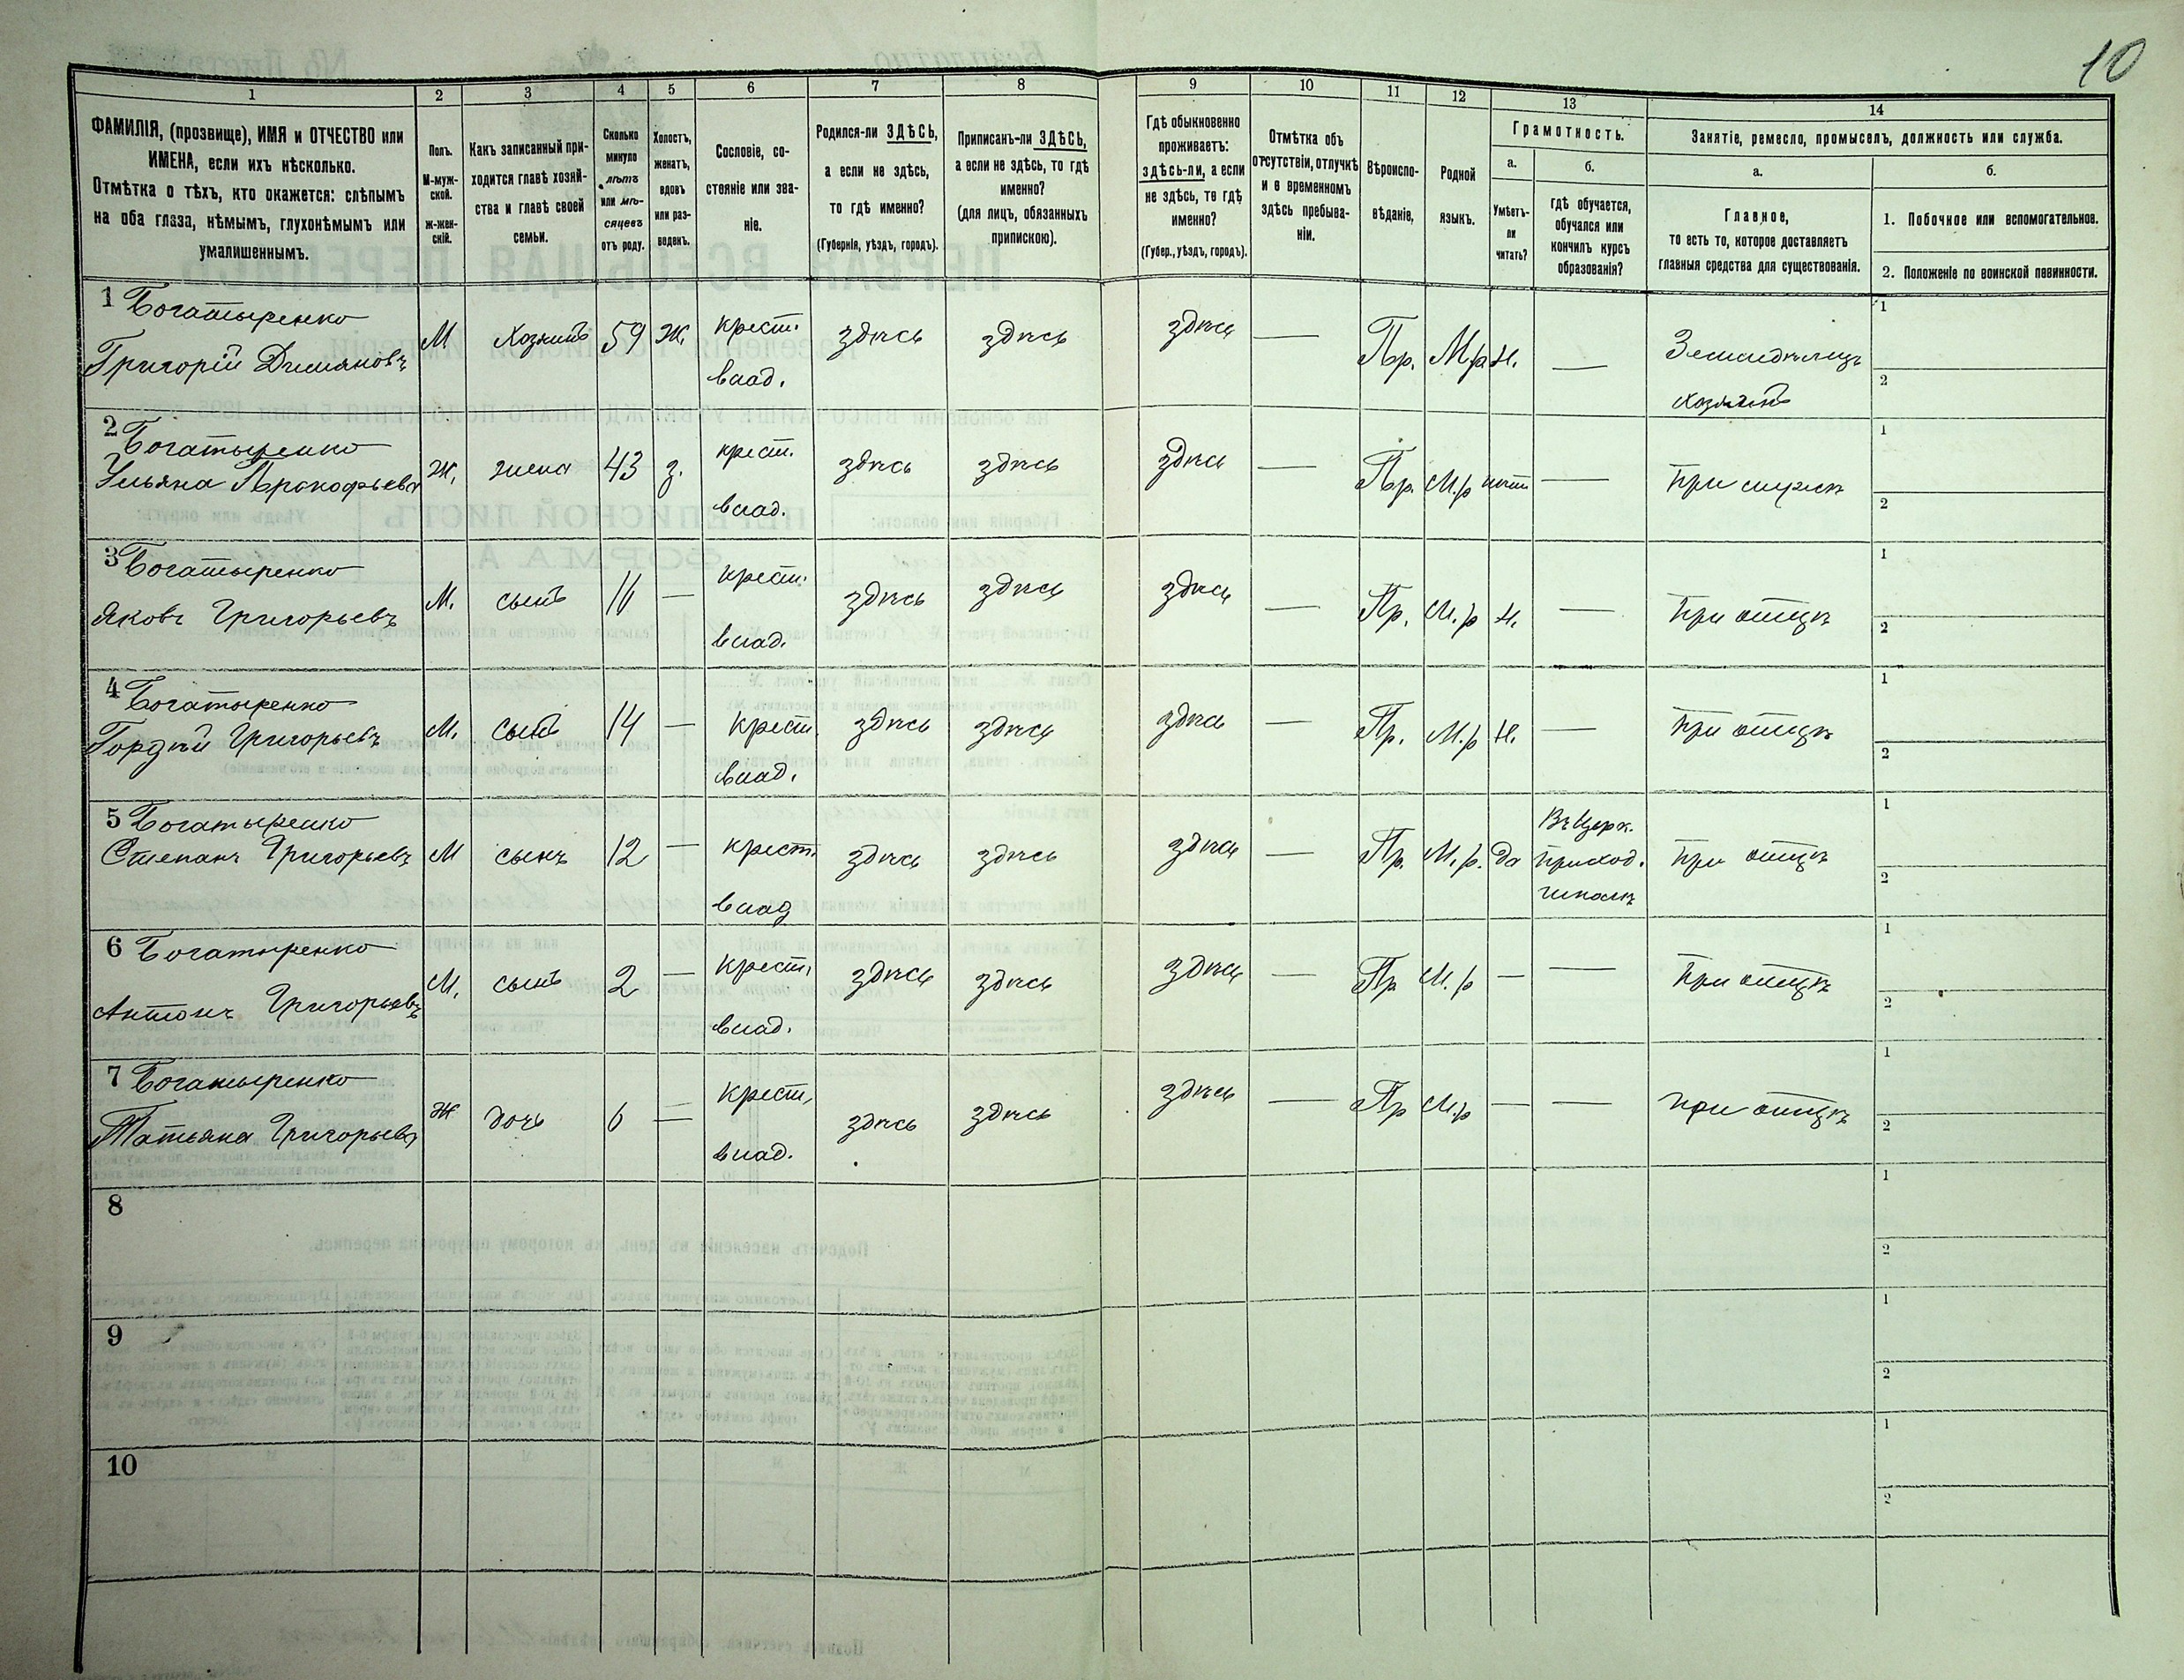 10
1 2 3 4 5 6 7 8 9 10 11 12 13 14
ФАМИЛІЯ, (прозвище), ИМЯ и ОТЧЕСТВО или
ИМЕНА, если ихъ нѣсколько.
Отмѣтка о тѣхъ, кто окажется: слѣпымъ
на оба глаза, нѣмымъ, глухонѣмымъ или
умалишеннымъ.
Полъ.
М-муж-
ской.
ж-жен-
скій.
Какъ записанный при-
ходится главѣ хозяй-
ства и главѣ своей
семьи.
Сколько
минуло
лѣтъ
или мѣ-
сяцевъ
отъ роду.
Холостъ,
женатъ,
вдовъ
или раз-
веденъ.
Сословіе, со-
стояніе или зва-
ніе.
Родился-ли ЗДѢСЬ,
а если не здѣсь,
то гдѣ именно?
(Губернія, уѣздъ, городъ).
Приписанъ-ли ЗДѢСЬ,
а если не здѣсь, то гдѣ
именно?
(для лицъ, обязанныхъ
припискою).
Гдѣ обыкновенно
проживаетъ:
здѣсь-ли, а если
не здѣсь, то гдѣ
именно?
(Губер., уѣздъ, городъ).
Отмѣтка объ
отсутствіи, отлучкѣ
и о временномъ
здѣсь пребыва-
ніи.
Вѣроиспо-
вѣданіе.
Родной
языкъ.
Грамотность.
а.
Умѣетъ-
ли
читать?
б.
гдѣ обучается,
обучался или
кончилъ курсъ
образованія?
Занятіе, ремесло, промыселъ, должность или служба.
а.
Главное,
то есть то, которое доставляетъ
главныя средства для существованія.
б.
1. Побочное или вспомогательное.
2. Положеніе по воинской повинности.
1 Богатыренко
Григорій Димяновъ
М Хозяинъ 59 Ж. крест.
влад.
здѣсь здѣсь здѣсь — Пр. М.р Н. — Земледѣлецъ
хозяинъ
1
2
2 Богатыренко
Ульяна Прокофьева
Ж. жена 43 з. крест.
влад.
здѣсь здѣсь здѣсь — Пр. М.р нѣтъ — При мужѣ
1
2
3 Богатыренко
Яковъ Григорьевъ
М. сынъ 16 — крест.
влад.
здѣсь здѣсь здѣсь — Пр. М.р Н. — При отцѣ
1
2
4 Богатыренко
Гордѣй Григорьевъ
М. сынъ 14 — Крест.
влад.
здѣсь здѣсь здѣсь — Пр. М.р Н. — При отцѣ
1
2
5 Богатыренко
Степанъ Григорьевъ
М сынъ 12 — крест.
влад
здѣсь здѣсь здѣсь — Пр. М.р. да
Въ Церк.
приход.
школѣ
При отцѣ
1
2
6 Богатыренко
Антонъ Григорьевъ
М. сынъ 2 — крест.
влад.
здѣсь здѣсь здѣсь — Пр М.р — — При отцѣ
1
2
7 Богатыренко
Татьяна Григорьева
Ж дочь 6 — Крест.
влад.
здѣсь здѣсь здѣсь — Пр М.р — — при отцѣ
1
2
8
1
2
9
1
2
10
1
2